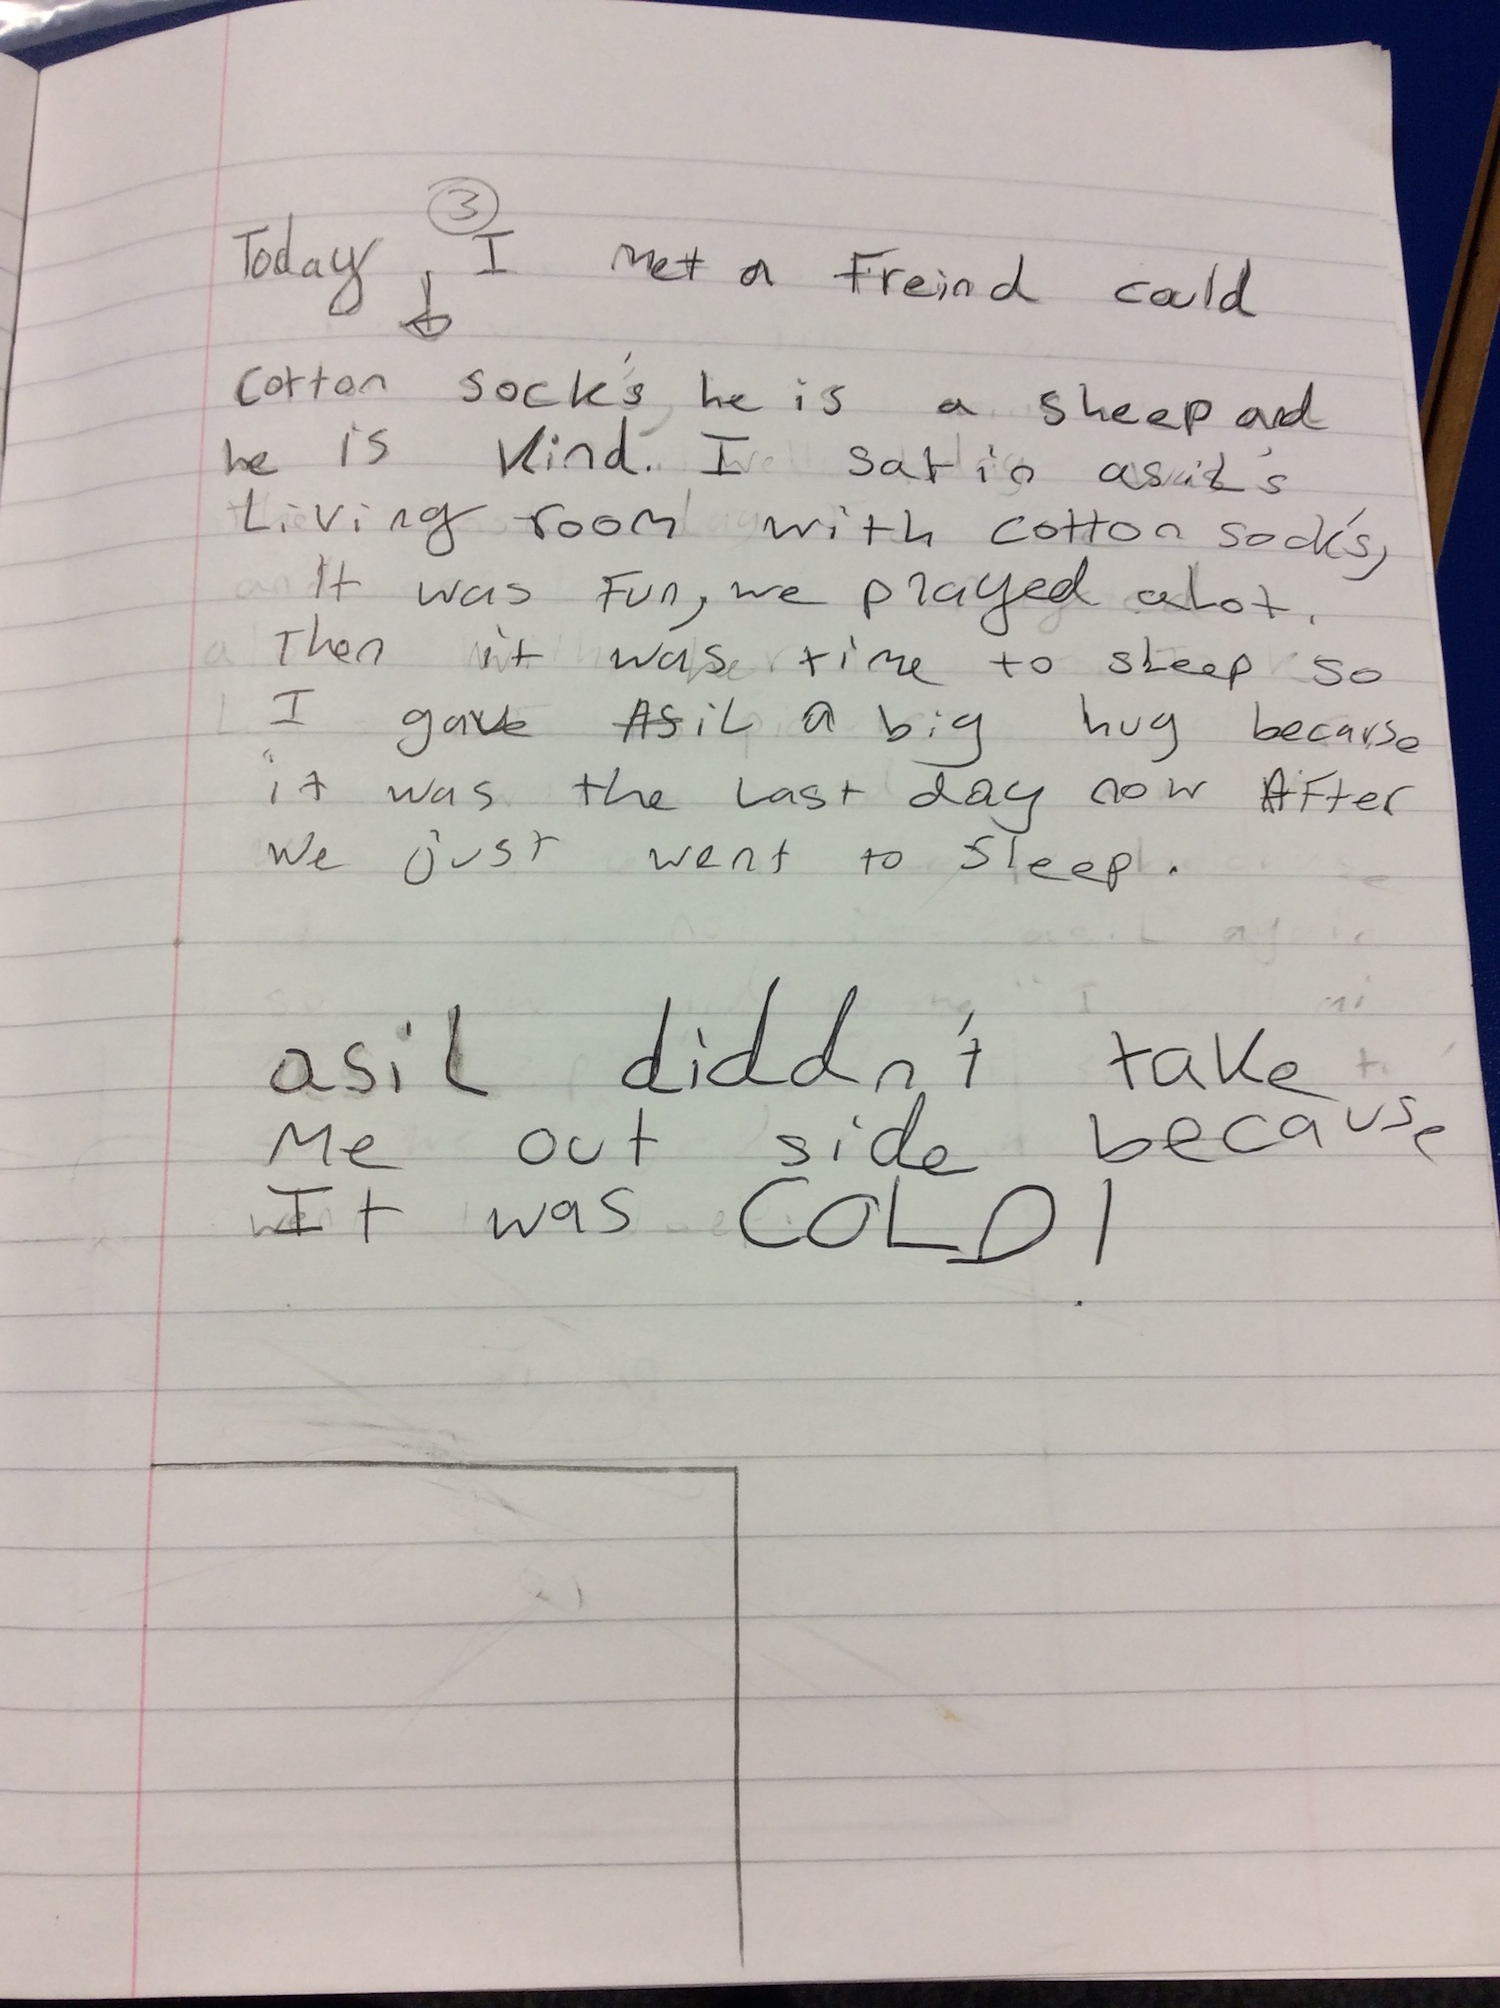 ③
Today, I met a Freind could
cotton sock's he is a sheep and
he is kind. I sat in asil's
Living room with cotton sock's,
It was Fun, we prayed alot.
Then it was time to sleep so
I gave Asil a big hug becarse
it was the last day now After
we just went to sleep.
asil diddn't take
me out side because
It was COLD!